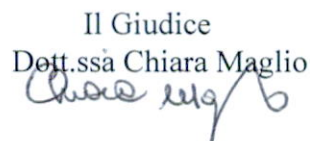 Il Giudice
Dott.ssa Chiara Maglio
Chiara Maglio